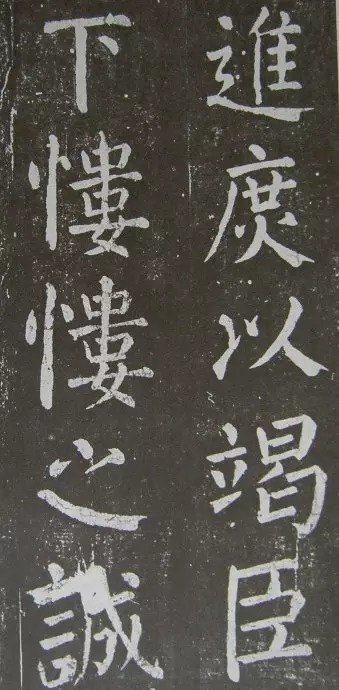 進庶以竭臣
下慺慺之誠